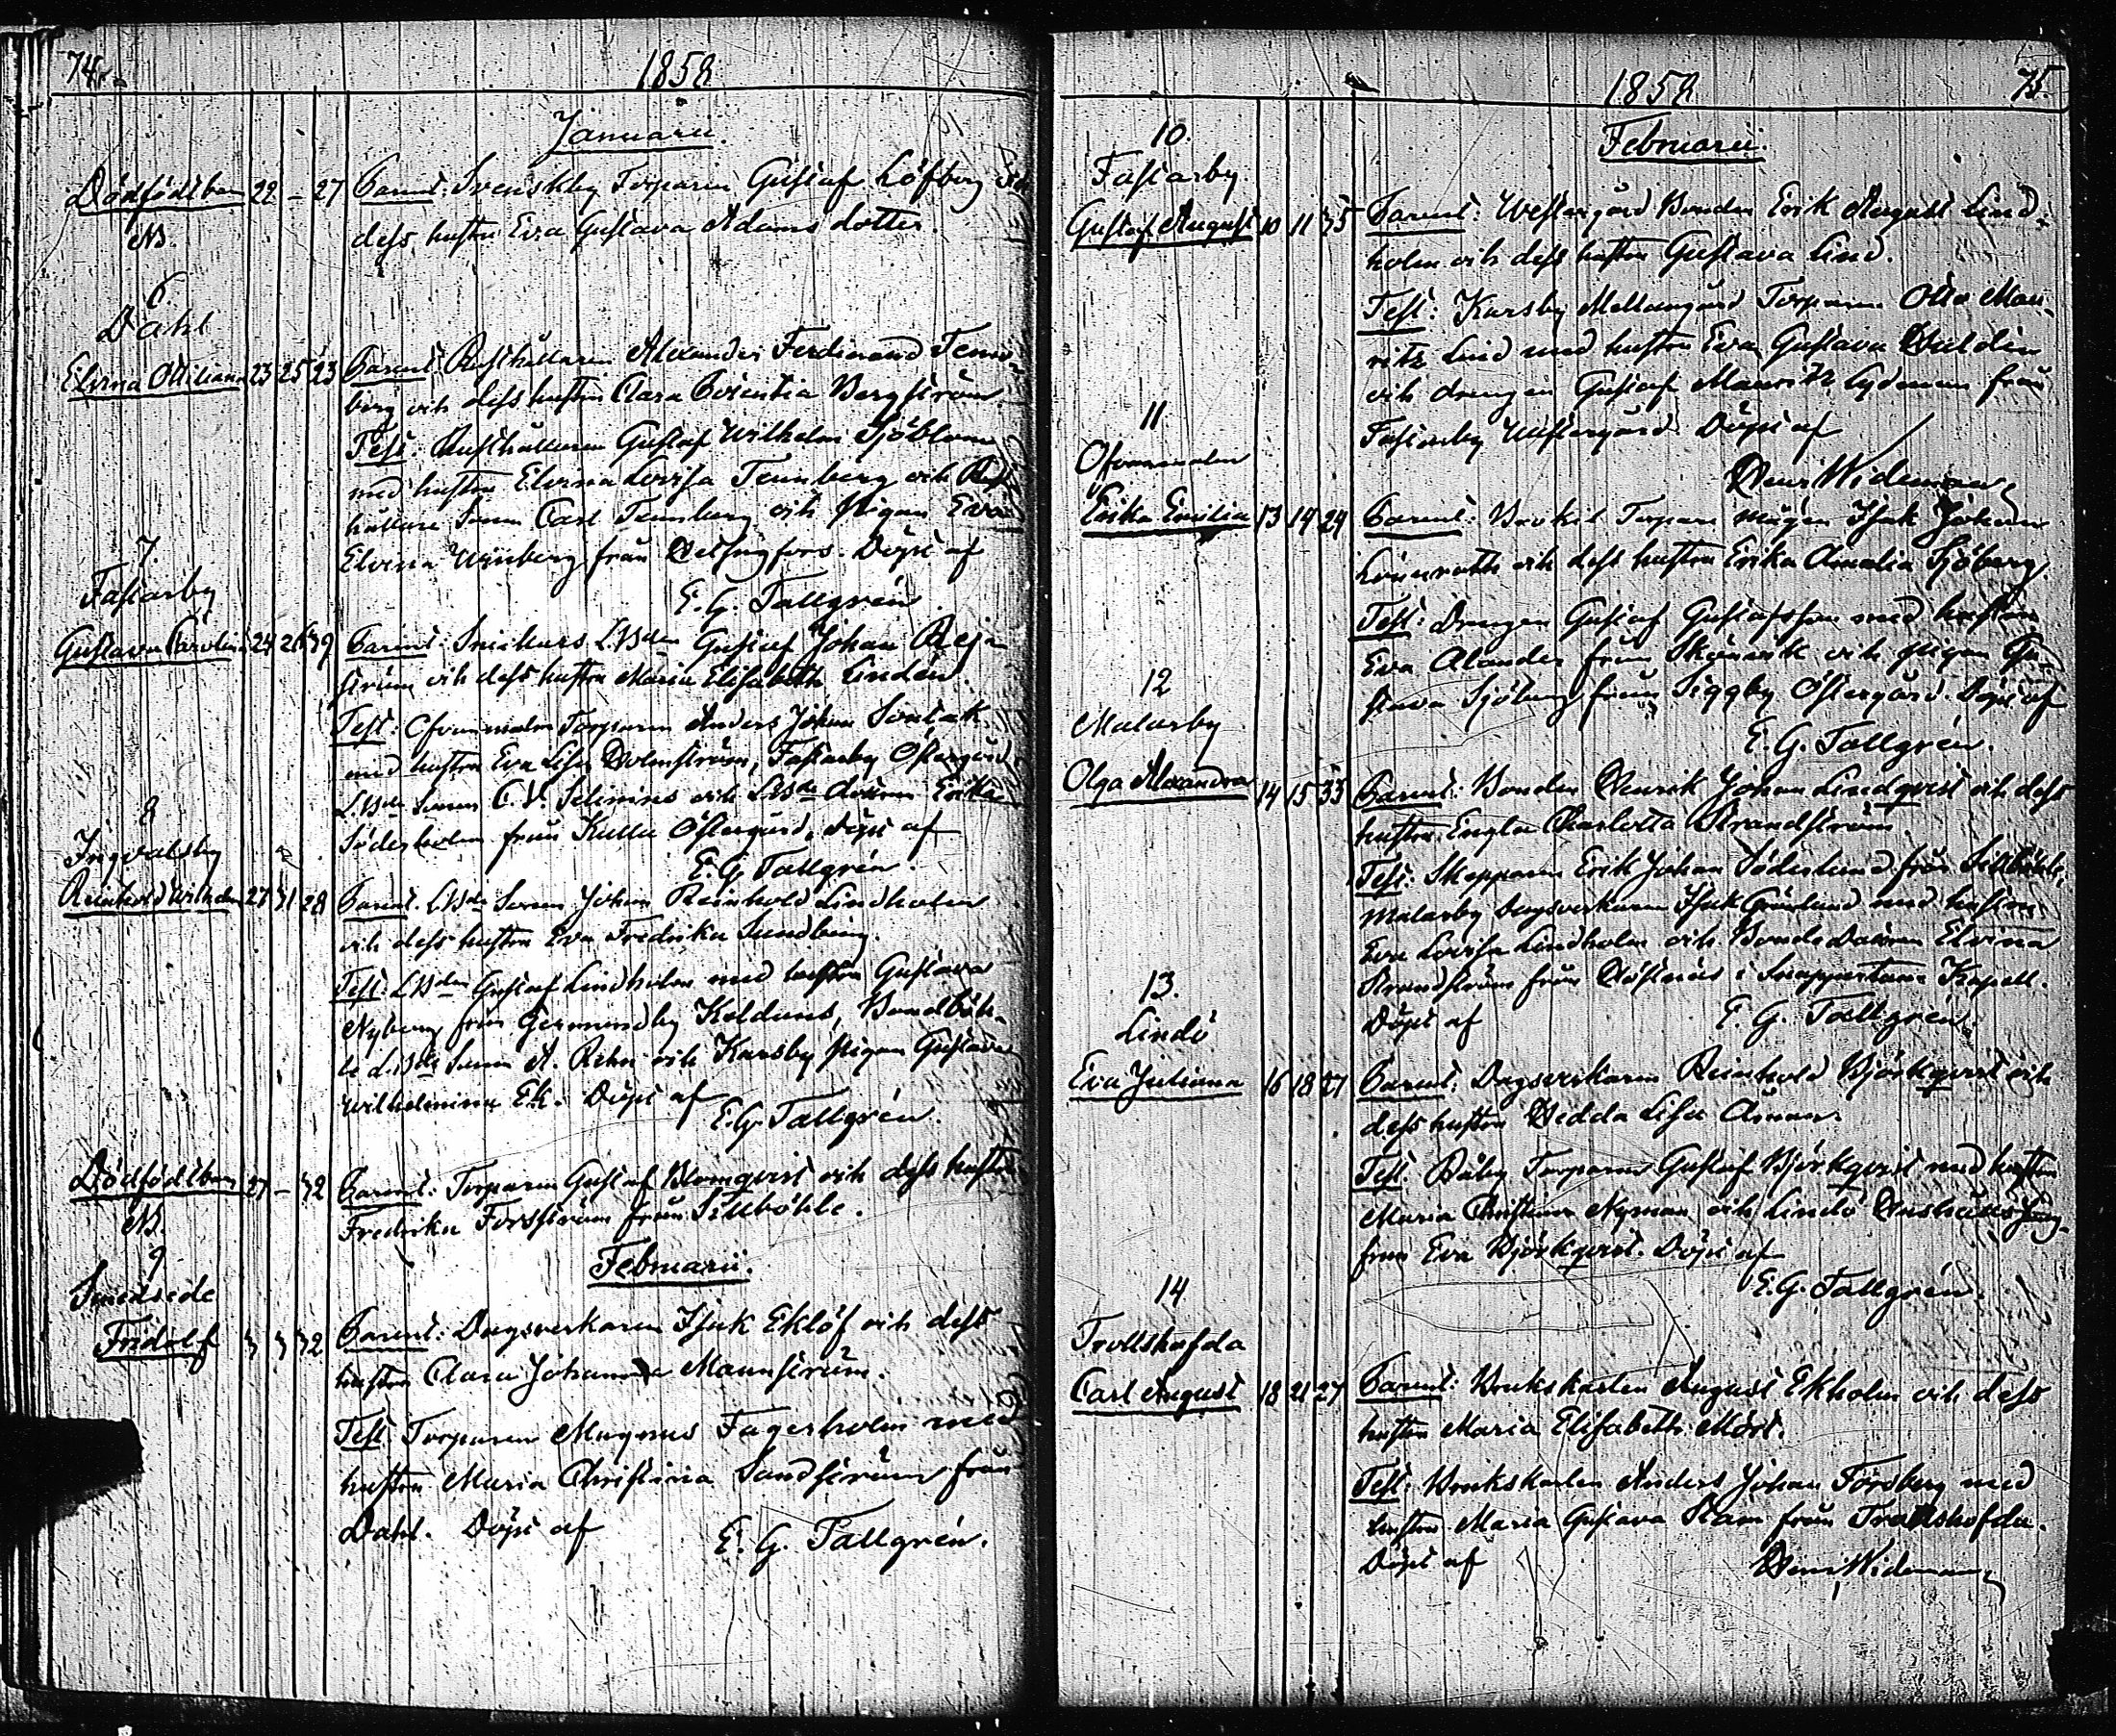 74.
1858
Januarii.
Dödfödt barn 22 – 27 Parent: Svenskby Torparen Gustaf Löfberg och
NB. dess hustru Eva Gustava Adams dotter.
6.
Dahl
Elvina Ottiliana 23 25 23 Parent: Rusthållaren Alexander Ferdinand Tenn-
berg och dess hustru Clara Bergström
Test: Rusthållaren Gustaf Wilhelm Sjöblom
med hustru Elvina Lovisa Tennberg och Rust-
hållare Sonen Carl Tennberg och Pigan Eva
Elvina Winberg från Helsingfors. Döpt af
E. G. Tallgrén
7.
Fastarby
Gustava Carolina 24 26 39 Parent: L.Bden Gustaf Johan Rej-
ström och dess hustru Maria Elisabeth Lindén.
Test: Ofvanmalm Torparen Anders Johan
med hustru Eva Lisa Holmström, Fastarby Östergård
L.Bde Sonen C. V. Selinius och L.Bde dottren Erika
Söderholm från Kulla Östergård, döpt af
E. G. Tallgrén.
8
Ingvalsby
Reinhold Wilhelm 27 31 28 Parent. L.Bde Sonen Johan Reinhold Lindholm
och dess hustru Eva Fredrika Sundberg.
Test. L.Bden Gustaf Lindholm med hustru Gustava
Nyberg från Germundby Kolduns, Bondböh-
le L.Bde Sonen A. Rehn och Karsby Pigan Gustava
Wilhelmina Ek. Döpt af
E. G. Tallgrén.
Dödfödt barn 27 – 32 Parent: Torparen Gustaf Blomqvist och dess hustru
NB. Fredrika Forsström från Sillböhle.
Februarii.
9
Smedsede
Fridolf 3 3 32 Parent: Dagsverkaren Isak Eklöf och dess
hustru Clara Johanna Mannström.
Test Torparen Magnus Fagerholm med
hustru Maria Christina Sandström från
Dahl. Döpt af
E. G. Tallgrén.
1858
75.
Februarii.
10.
Fastarby
Gustaf August 10 11 35 Parent: Westergård Bonden Erik August Lind-
holm och dess hustru Gustava Lind.
Test: Karsby Mellangård Torparen Otto Mau-
ritz Lind med hustru Eva Gustava
och drengen Gustaf Mauritz Lydman från
Fastarby Westergård. Döpt af
Henr Wideman
11
Ofvanmalm
Erika Emilia 13 14 24 Parent: Torpare mågen Isak Johan
Lönnroth och dess hustru Erika Amalia Sjöberg.
Test: Drengen Gustaf Gustafsson med hustru
Eva Alander från Skarvik och pigan Gu-
stava Sjöberg från Siggby Östergård. Döpt af
E. G. Tallgrén.
12
Malarby
Olga Alexandra 14 15 33 Parent: Bonden Henrik Johan Lindqvist och dess
hustru Engla Charlotta Strandström
Test: Skepparen Erik Johan Söderlund från Sillböhle,
Malarby Dagsverkaren Isak Grönlund med hustru
Eva Lovisa Lindholm och Bonde Dottren Elvina
Strandström från i Snappertuna Kapell.
Döpt af
E. G. Tallgrén.
13.
Lindö
Eva Juliana 16 18 27 Parent: Dagsverkaren Reinhold Björkqvist och
dess hustru Hedda Lisa Åman.
Test. Båby Torparen Gustaf Björkqvist med hustru
Maria Christina Nyman och Lindö Hushålls Jung-
frun Eva Björkqvist. Döpt af
E. G. Tallgrén.
14
Trollshofda
Carl August 18 21 27 Parent: Brukskarlen August Ekholm och dess
hustru Maria Elisabeth Mört.
Test. Brukskarlen Anders Johan Forsberg med
hustru Maria Gustava Stam från Trollshofda.
Döpt af
Henr Wideman